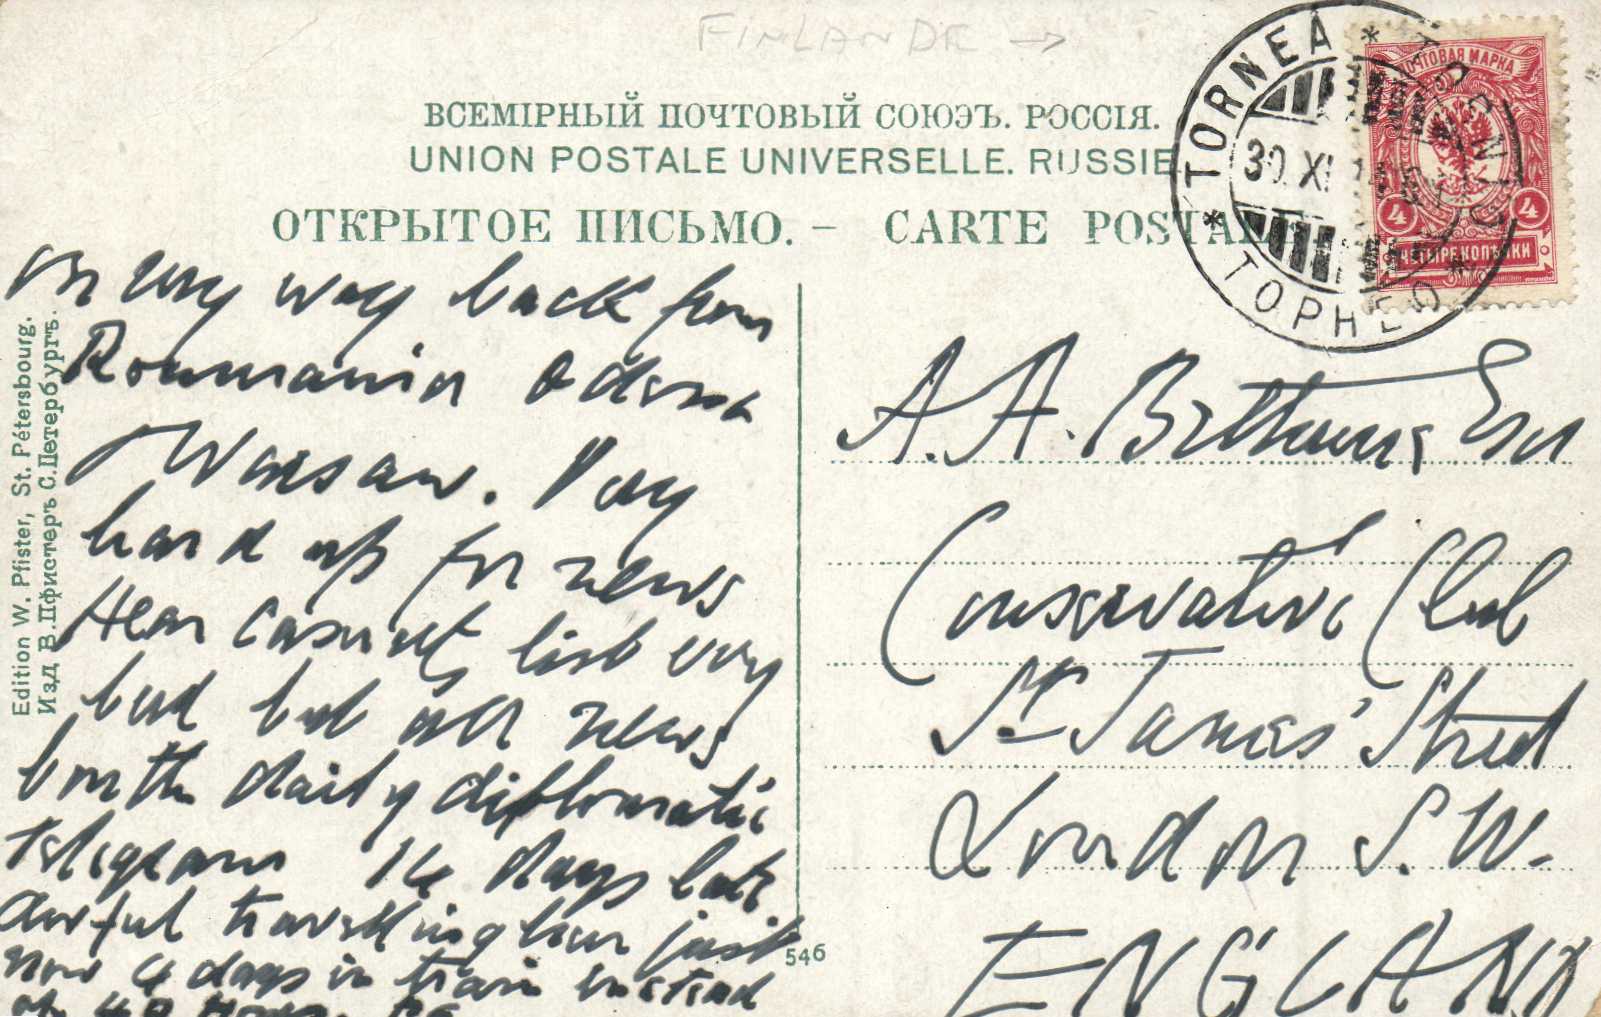 FINLANDE →
ВСЕМІРНЫЙ ПОЧТОВЫЙ СОЮЗЪ. РОССІЯ.
UNION POSTALE UNIVERSELLE. RUSSIE
ОТКРЫТОЕ ПИСЬМО. – CARTE POSTAL
TORNEÅ
30. XI
ТОРНЕО
ПОЧТОВАЯ МАРКА
4 4
ЧЕТЫРЕ КОПѢЙКИ
Edition W. Pfister, St. Pétersbourg.
Изд. В. Пфистеръ С. Петербургъ.
on my way back from
Roumania Odessa
Warsaw. Very
hard up for news
Hear casualty list very
bad but all news
but the daily diplomatic
telegram 14 days late.
Awful travelling here just
now 4 days in train instead
of 40 hours.
546
A. A. Esq
Conservative Club
St James' Street
London S.W.
ENGLAND